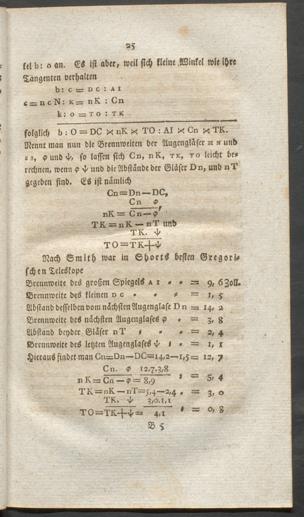 25
kel b: o an. Es ist aber, weil sich kleine Winkel wie ihre
Tangenten verhalten
b: c = DC: AI
c = n c N: K = n K : C n
k: o = TO : TK
folglich b: O = DC × nK × TO : AI × Cn × TK.
Nennt man nun die Brennweiten der Augengläser
φ und ψ, so lassen sich Cn, nK, TK, TO leicht be-
rechnen, wenn φ ψ und die Abstände der Gläser Dn, und nT
gegeben sind. Es ist nämlich
Cn = Dn − DC,
Cn φ
nK = Cn − φ,
TK = nK − nT und
TK. ψ
TO = TK + ψ
Nach Smith war in Shorts besten Gregori-
schen Teleskope
Brennweite des großen Spiegels AI = 9, 6 Zoll.
Brennweite des kleinen DC = 1, 5
Abstand desselben vom nächsten Augenglase Dn = 14, 2
Brennweite des nächsten Augenglases φ = 3, 8
Abstand beyder Gläser nT = 2, 4
Brennweite des letzten Augenglases ψ = 1, 1
Hieraus findet man Cn = Dn − DC = 14,2 − 1,5 = 12, 7
Cn. φ 12,7.3,8
nK = Cn − φ = 8,9 = 5, 4
TK = nK − nT = 5,4 − 2,4 = 3, 0
TK. ψ 3,0.1,1
TO = TK + ψ = 4,1 = 0, 8
B 5